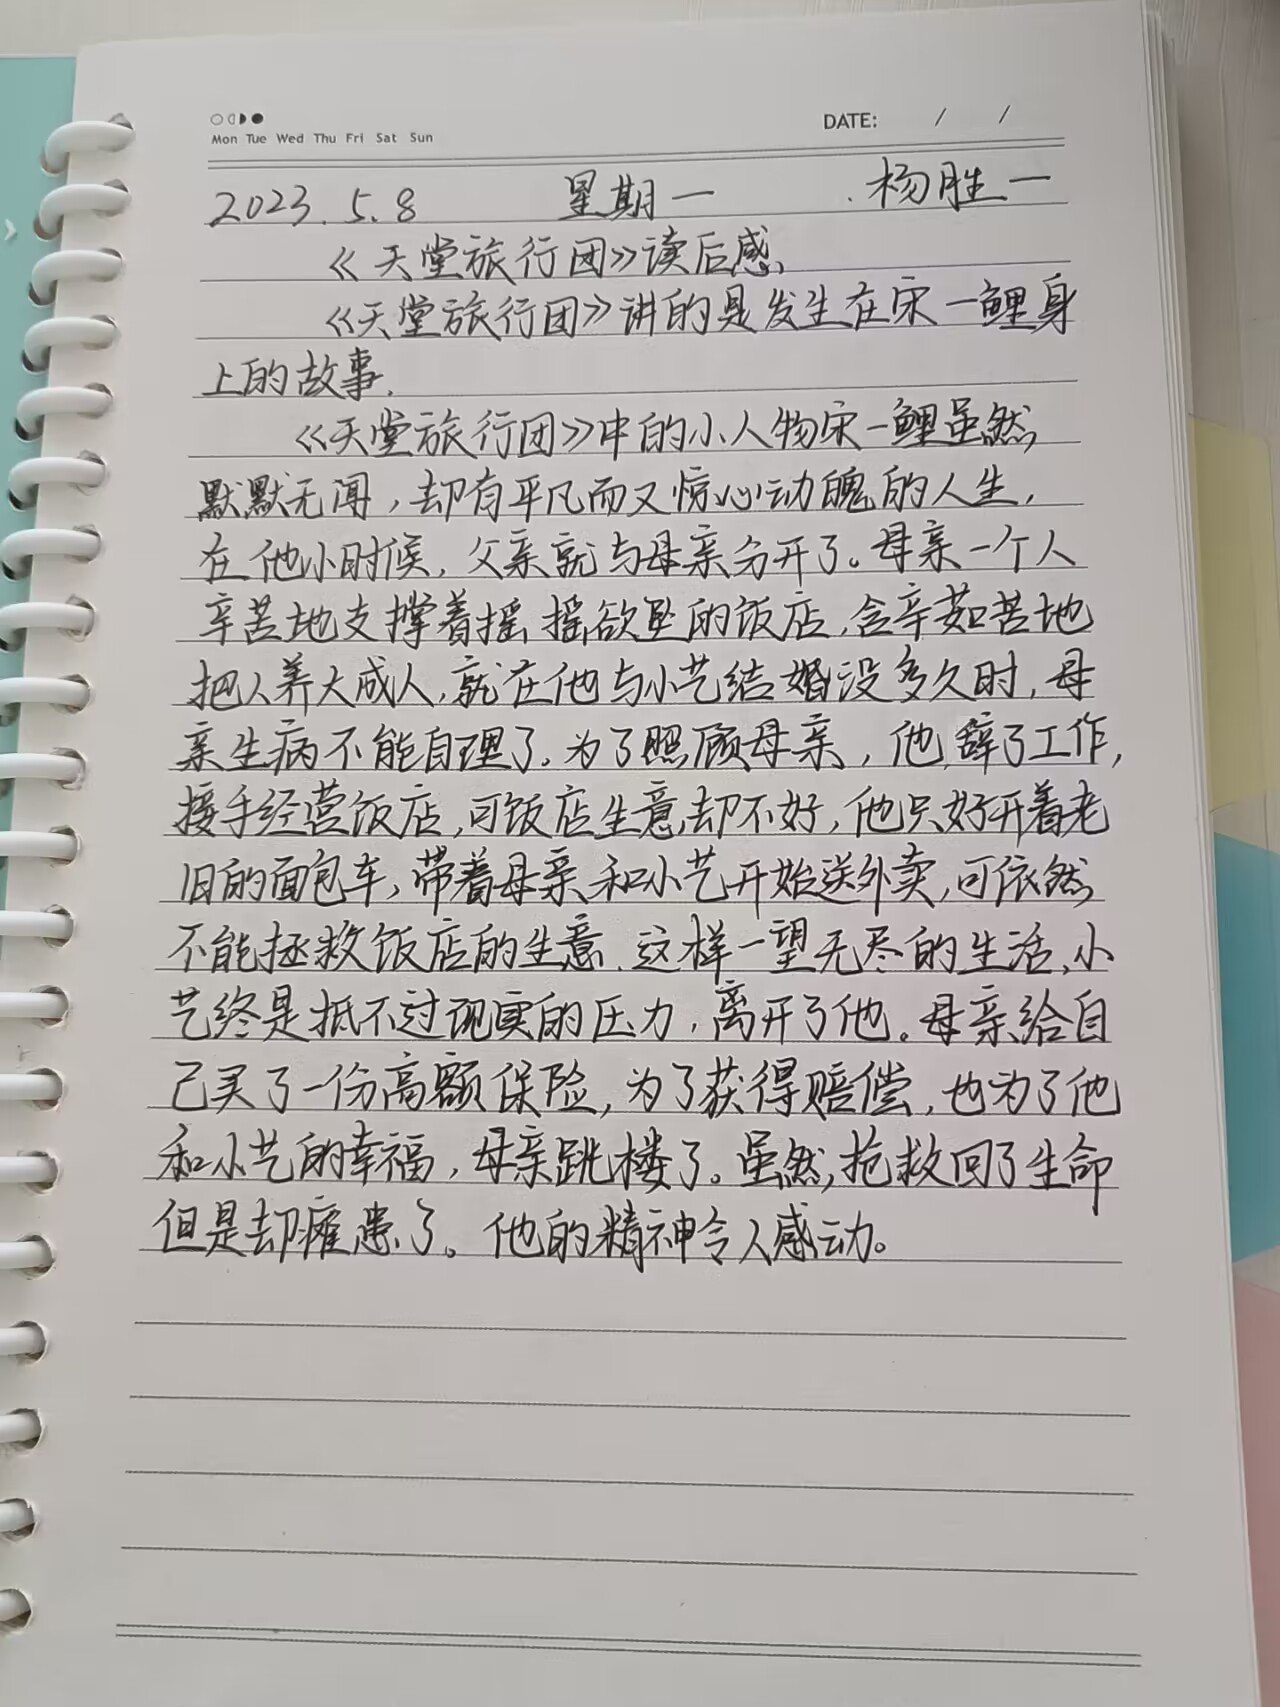 Mon Tue Wed Thu Fri Sat Sun
DATE: / /
2023.5.8 星期一 杨胜一
《天堂旅行团》读后感
《天堂旅行团》讲的是发生在宋一鲤身
上的故事.
《天堂旅行团》中的小人物宋一鲤虽然
默默无闻，却有平凡而又惊心动魄的人生，
在他小时候，父亲就与母亲分开了。母亲一个人
辛苦地支撑着摇摇欲坠的饭店，含辛茹苦地
把人养大成人，就在他与小艺结婚没多久时，母
亲生病不能自理了，为了照顾母亲，他辞了工作，
接手经营饭店，可饭店生意却不好，他只好开着老
旧的面包车，带着母亲和小艺开始送外卖，可依然
不能拯救饭店的生意，这样一望无尽的生活，小
艺终是抵不过现实的压力，离开了他。母亲给自
己买了一份高额保险，为了获得赔偿，也为了他
和小艺的幸福，母亲跳楼了。虽然，抢救回了生命
但是却瘫患了。他的精神令人感动。